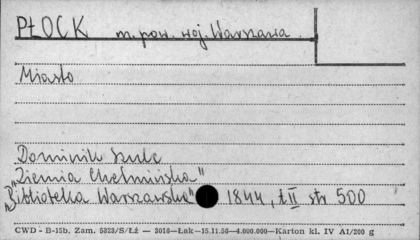 PŁOCK m. pow. woj. Warszawa
Miasto
Dominik Szulc
"Ziemia Chełmińska"
"Biblioteka Warszawska" 1844, t II str 500
CWD - B-15b. Zam. 5323/S/Łż — 3016—Łak—15.11.56—4.000.000—Karton kl. IV A1/200 g